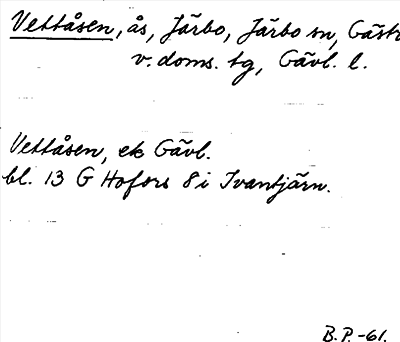 Vettåsen, ås, Järbo, Järbo sn, Gästr
v. doms. tg, Gävl. l.
Vettåsen, ek Gävl.
bl. 13 G Hofors 8 i Ivantjärn.
B.P.-61.